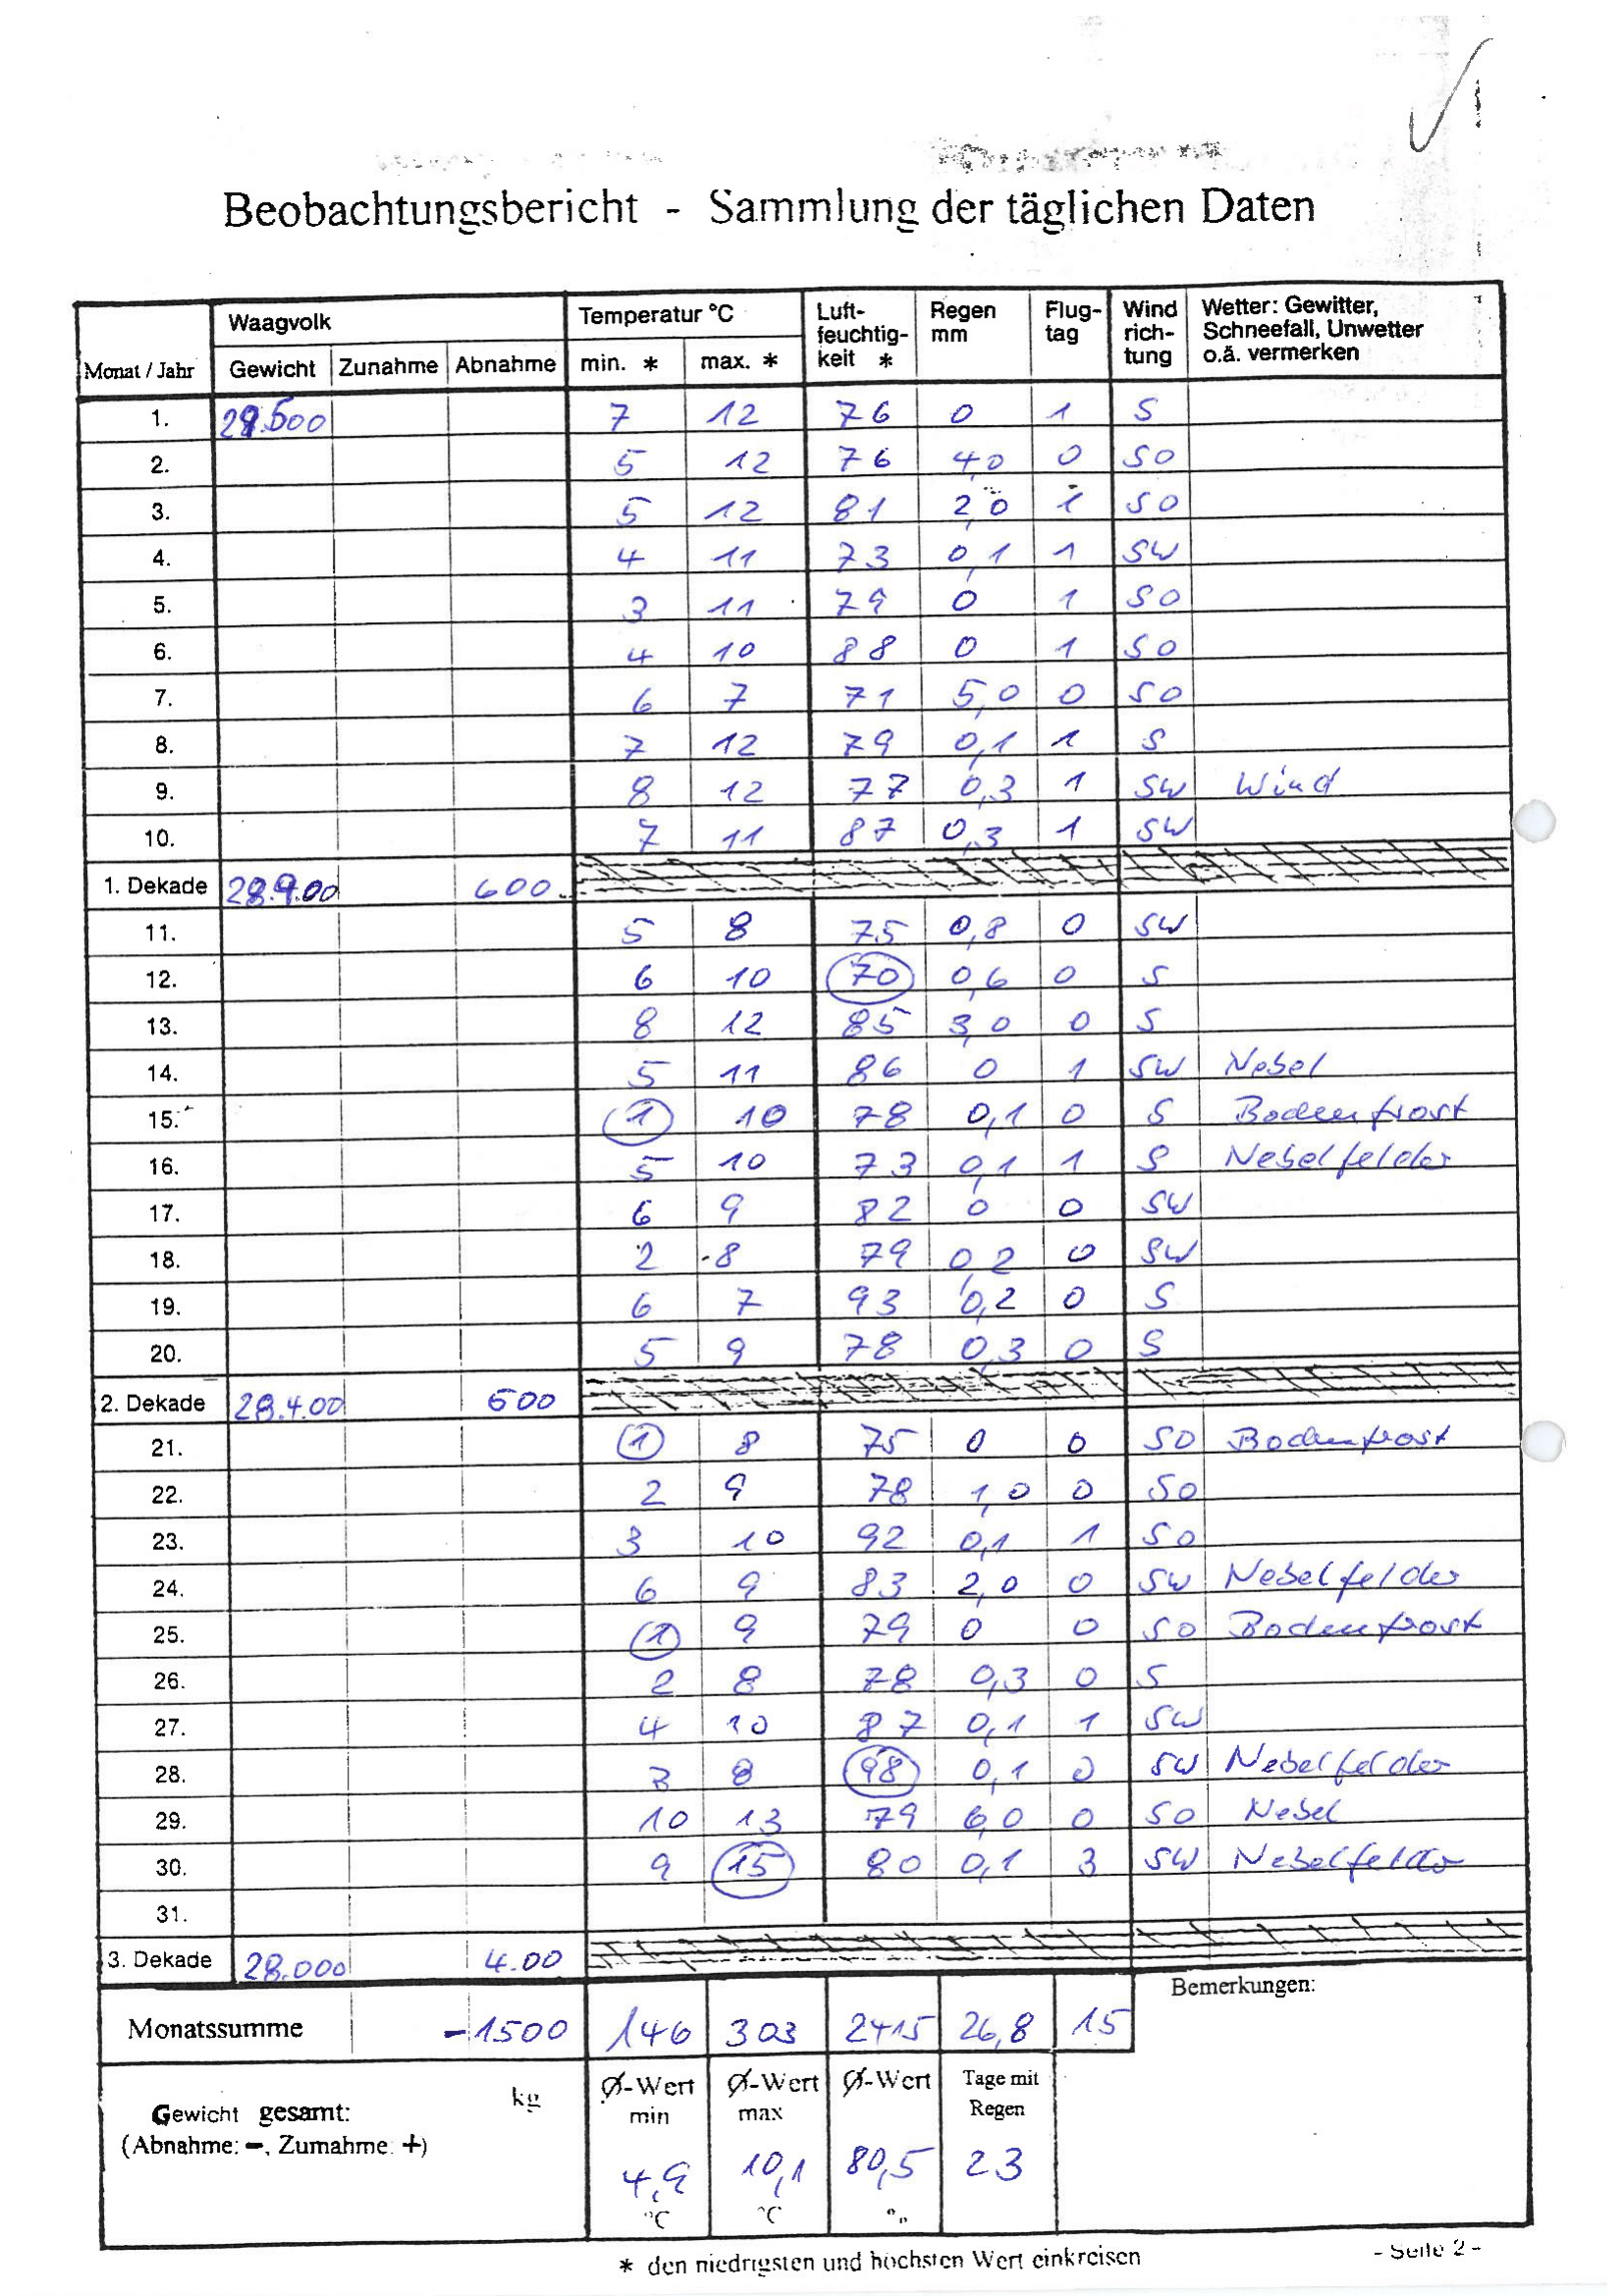 Beobachtungsbericht - Sammlung der täglichen Daten
Monat / Jahr Waagvolk Temperatur °C Luft-feuchtig-keit * Regen mm Flug-tag Wind rich-tung Wetter: Gewitter, Schneefall, Unwetter o.ä. vermerken
Gewicht Zunahme Abnahme min. * max. *
1. 29.500 7 12 76 0 1 S
2. 5 12 76 4,0 0 SO
3. 5 12 81 2,0 1 SO
4. 4 11 73 0,1 1 SW
5. 3 11 79 0 1 SO
6. 4 10 88 0 1 SO
7. 6 7 71 5,0 0 SO
8. 7 12 79 0,1 1 S
9. 8 12 77 0,3 1 SW Wind
10. 7 11 87 0,3 1 SW
1. Dekade 28.900 600
11. 5 8 75 0,8 0 SW
12. 6 10 70 0,6 0 S
13. 8 12 85 3,0 0 S
14. 5 11 86 0 1 SW Nebel
15. 1 10 78 0,1 0 S Bodenfrost
16. 5 10 73 0,1 1 S Nebelfelder
17. 6 9 82 0 0 SW
18. 2 8 79 0,2 0 SW
19. 6 7 93 0,2 0 S
20. 5 9 78 0,3 0 S
2. Dekade 28.400 500
21. 1 8 75 0 0 SO Bodenfrost
22. 2 9 78 1,0 0 SO
23. 3 10 92 0,1 1 SO
24. 6 9 83 2,0 0 SW Nebelfelder
25. 1 9 79 0 0 SO Bodenfrost
26. 2 8 78 0,3 0 S
27. 4 10 87 0,1 1 SW
28. 3 8 98 0,1 0 SW Nebelfelder
29. 10 13 79 6,0 0 SO Nebel
30. 9 15 80 0,1 3 SW Nebelfelder
31.
3. Dekade 28.000 4.00
Bemerkungen:
Monatssumme -1500 146 303 2415 26,8 15
Gewicht gesamt: kg Ø-Wert min Ø-Wert max Ø-Wert Tage mit Regen
(Abnahme: -, Zumahme: +)
4,9 10,1 80,5 23
°C °C %
* den niedrigsten und höchsten Wert einkreisen
- Seite 2 -